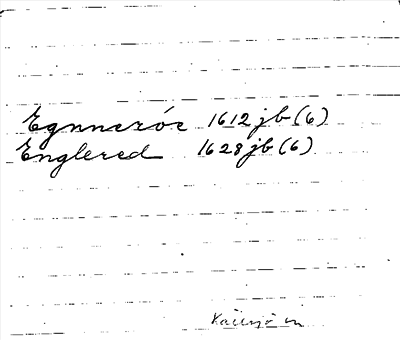 Egnnaröc 1612 jb (6)
Englered 1628 jb (6)
Källsjö sn